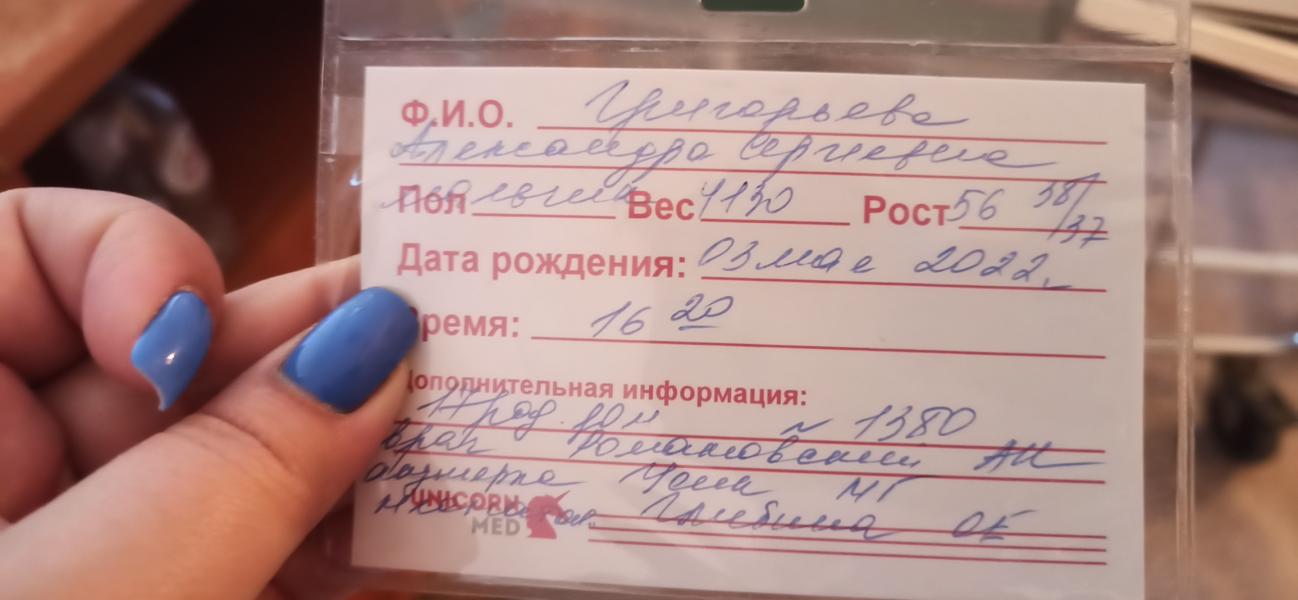 Ф.И.О. Григорьева
Александра Сергеевна
Пол мальчик Вес 4130 Рост 56 38/37
Дата рождения: 03 мая 2022
Время: 16 20
Дополнительная информация:
17 род. дом № 1380
врач Романовский АИ
акушерка МГ
UNICORN
MED ОЕ